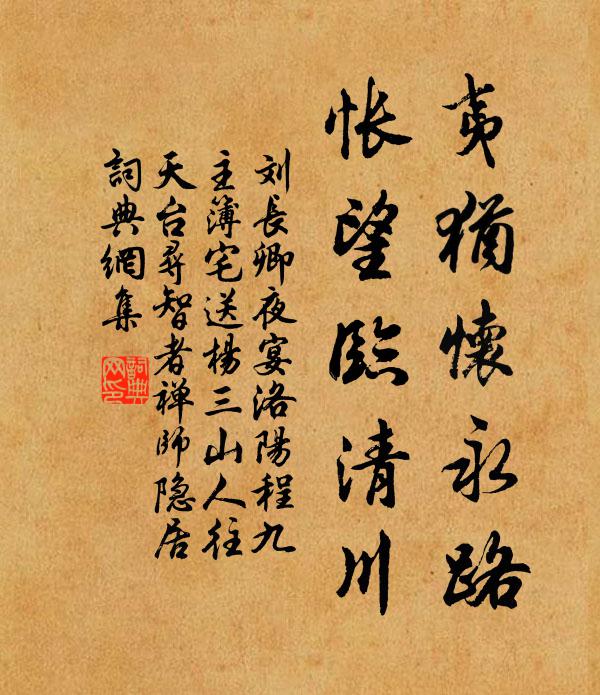 夷猶懷永路
悵望臨清川
刘長卿夜宴洛陽程九
主簿宅送楊三山人往
天台尋智者禅師隐居
詞典網集
詞典
网印